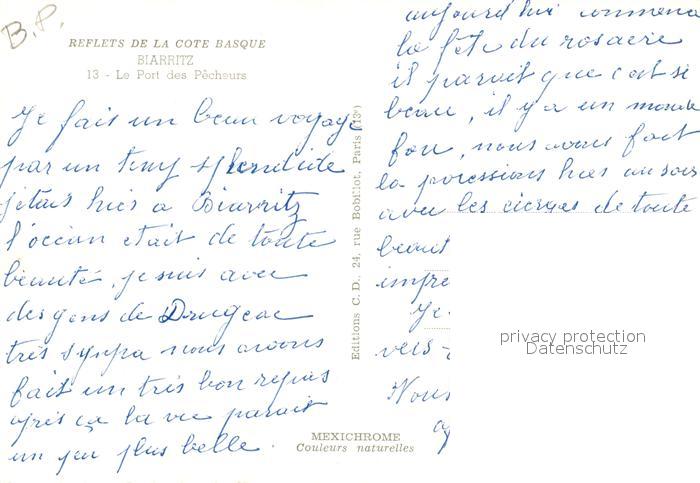 B.P.
REFLETS DE LA COTE BASQUE
BIARRITZ
13 - Le Port des Pêcheurs
Je fais un beau voyage
par un temp splendide
jetais hier a Biarritz
l'océan etait de toute
beauté, je suis avec
des gens de Drugeac
très sympa nous avons
fait un très bon repas
après ça la vie parait
un peu plus belle.
Editions C.D., 24, rue Bobillot, Paris (13e)
MEXICHROME
Couleurs naturelles
aujourd'hui commence
la fête du rosaire
il parait que c'est si
beau, il y a un monde
fou, nous avons fait
la procession hier au soir
avec les cierges de toute
beaut
impre
Je
vers
Nous
privacy protection
Datenschutz